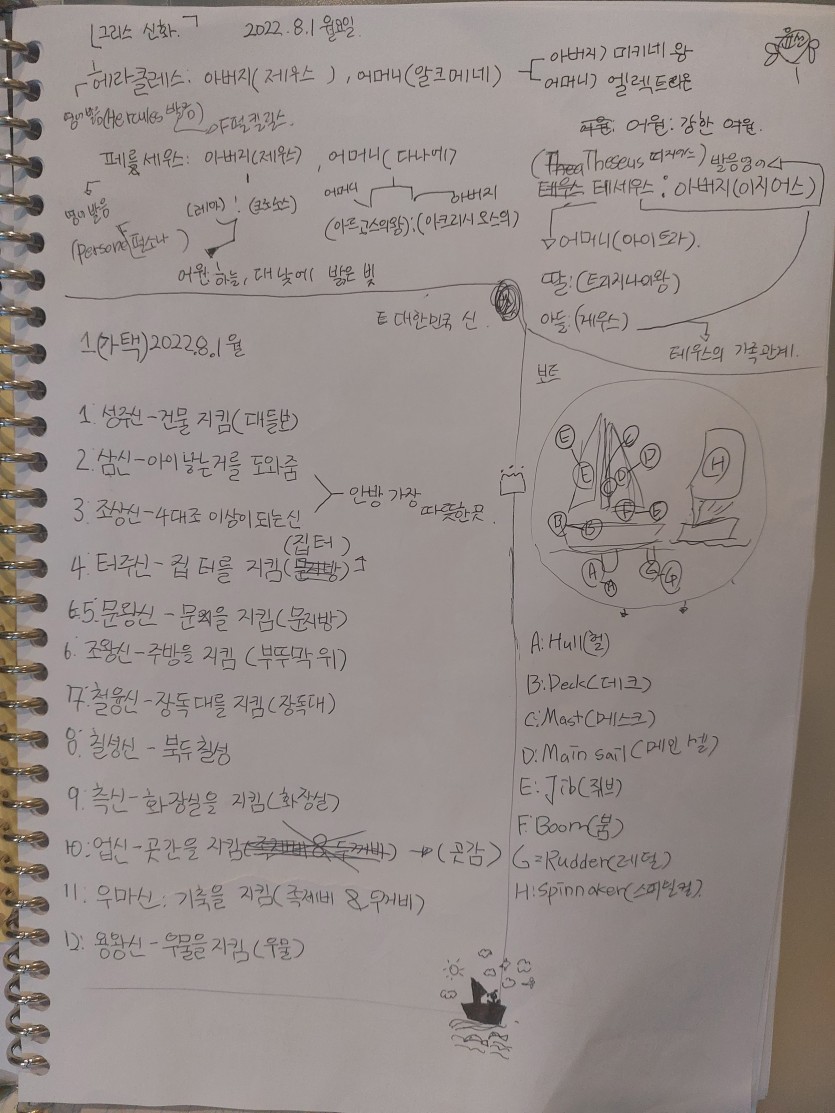 「그리스 신화」 2022.8.1 월요일
헤라클레스: 아버지(제우스), 어머니(알크메네)
아버지) 미키네 왕
어머니) 엘렉트리온
영어발음(Hercules 발음)
F펄킬릴스
어원: 강한 여원.
페르세우스: 아버지(제우스), 어머니(다나에)
(Theseus 띠지어스) 발음영어
테세우스: 아버지(이지어스)
영어발음
(레아) : (크로노스)
어머니
아버지
(아르고스의왕):(아크리시오스의)
(person 펄소나)
어머니(아이트라).
어원: 하늘, 대낮에 밝은 빛
딸:(트리지나이왕)
아들:(제우스)
테우스의 가족관계.
E 대한민국 신.
1.(가택) 2022.8.1월
1: 성주신-건물 지킴(대들보)
2. 삼신-아이 낳는거를 도와줌
3. 조상신-4대조 이상이 되는신
안방 가장 따뜻한곳.
(집 터)
4. 터주신-집 터를 지킴(문지방)
5. 문왕신-문을 지킴(문지방)
6. 조왕신-주방을 지킴 (부뚜막 위)
7. 철융신-장독대를 지킴(장독대)
8: 칠성신-북두칠성
9: 측신-화장실을 지킴(화장실)
10: 업신-곳간을 지킴(족제비 & 두꺼비) → (곳감)
11: 우마신: 기축을 지킴(족제비 & 두꺼비)
12: 용왕신-우물을 지킴(우물)
보트
E
E
C
D
D
H
B
B
F
F
A
A
G
G
A: Hull(헐)
B: Deck(데크)
C: Mast(메스크)
D: Main sail(메인 세)
E: Jib(줘브)
F: Boom(붐)
G=Rudder(레덜)
H: Spinnaker(스피넌컬)